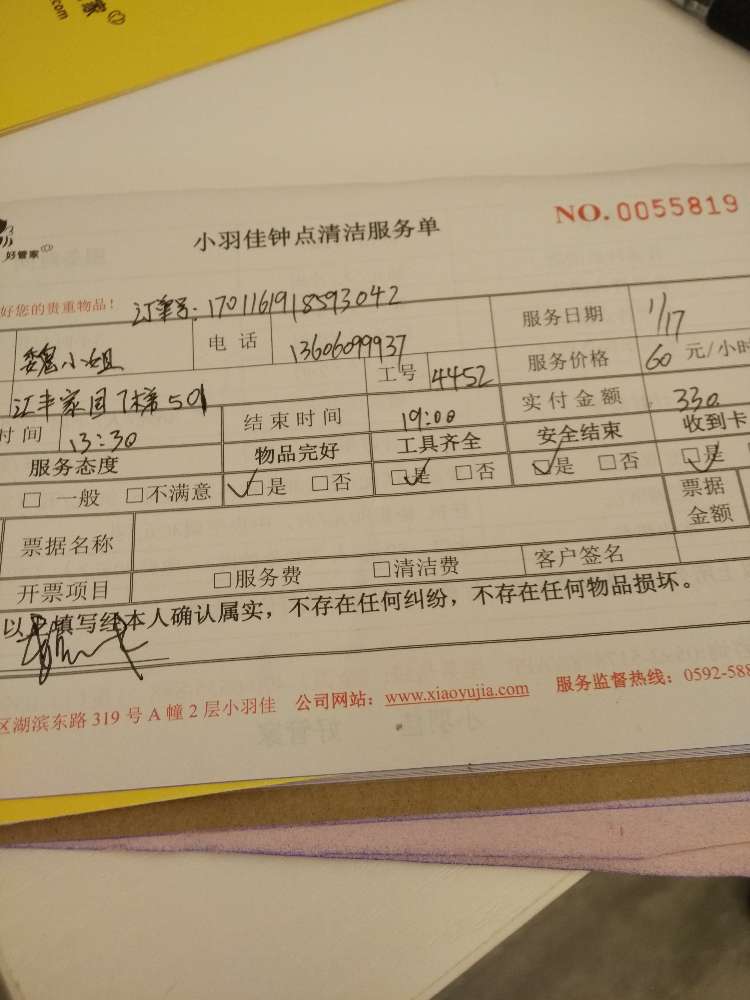 家
com
NO. 0055819
小羽佳钟点清洁服务单
好管家
好您的贵重物品！ 订单号：170116191859304​2
魏小姐 电话 13606099937 服务日期 1/17
工号 4452 服务价格 60 元/小时
江丰家园7梯501 结束时间 19:00 实付金额 330
时间 13:30 物品完好 工具齐全 安全结束 收到卡
服务态度 □是 □否 □是 □否 □是 □否 □是
□ 一般 □不满意 票据金额
票据名称
开票项目 □服务费 □清洁费 客户签名
以 填写经本人确认属实，不存在任何纠纷，不存在任何物品损坏。
区湖滨东路 319 号 A 幢 2 层小羽佳 公司网站：www.xiaoyujia.com 服务监督热线：0592-588